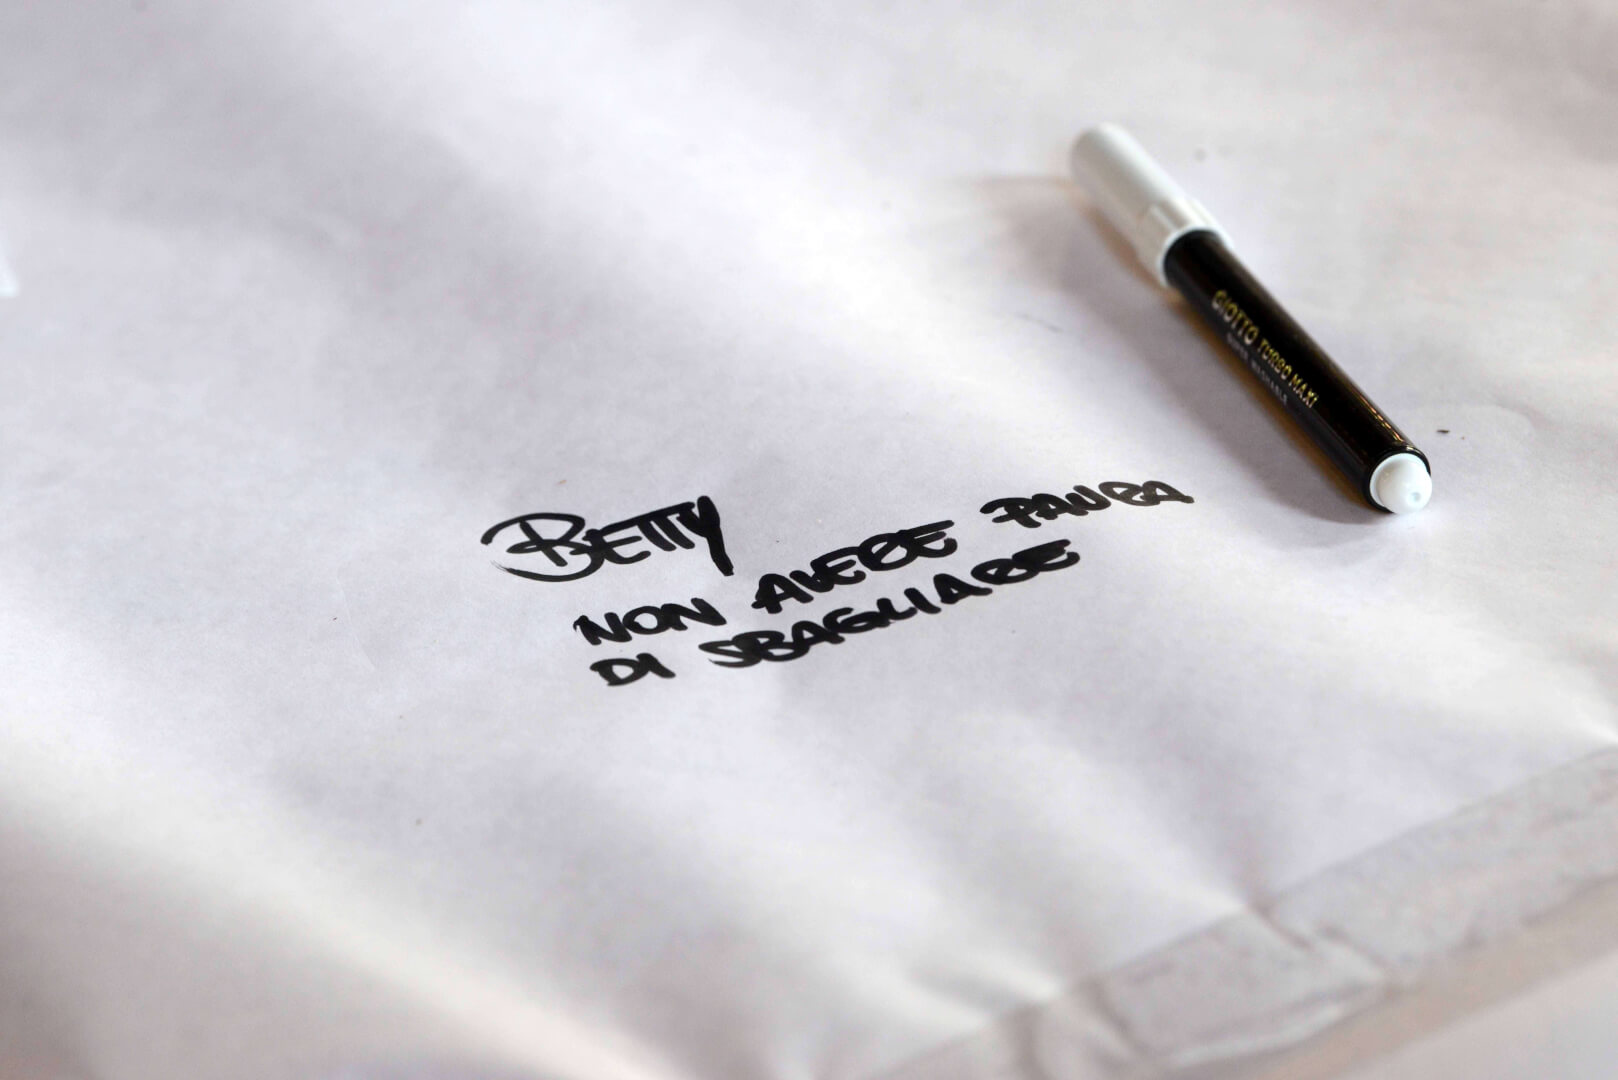 BETTY
NON AVERE PAURA
DI SBAGLIARE
GIOTTO TURBO MAXI
SUPER WASHABLE